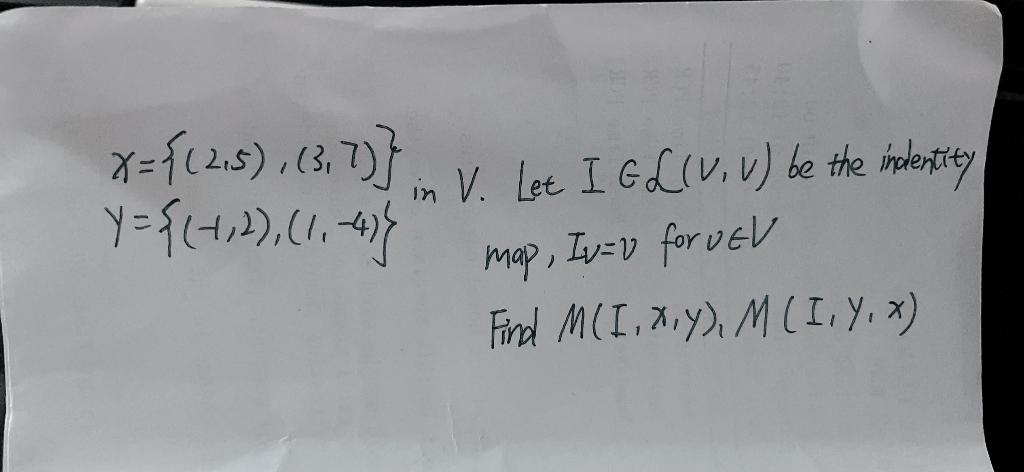 x={(2,5),(3,7)}
y={(-1,2),(1,-4)}
in V. Let I ∈ L(V,V) be the indentity
map, Iv=v for v∈V
Find M(I,x,y), M(I,y,x)